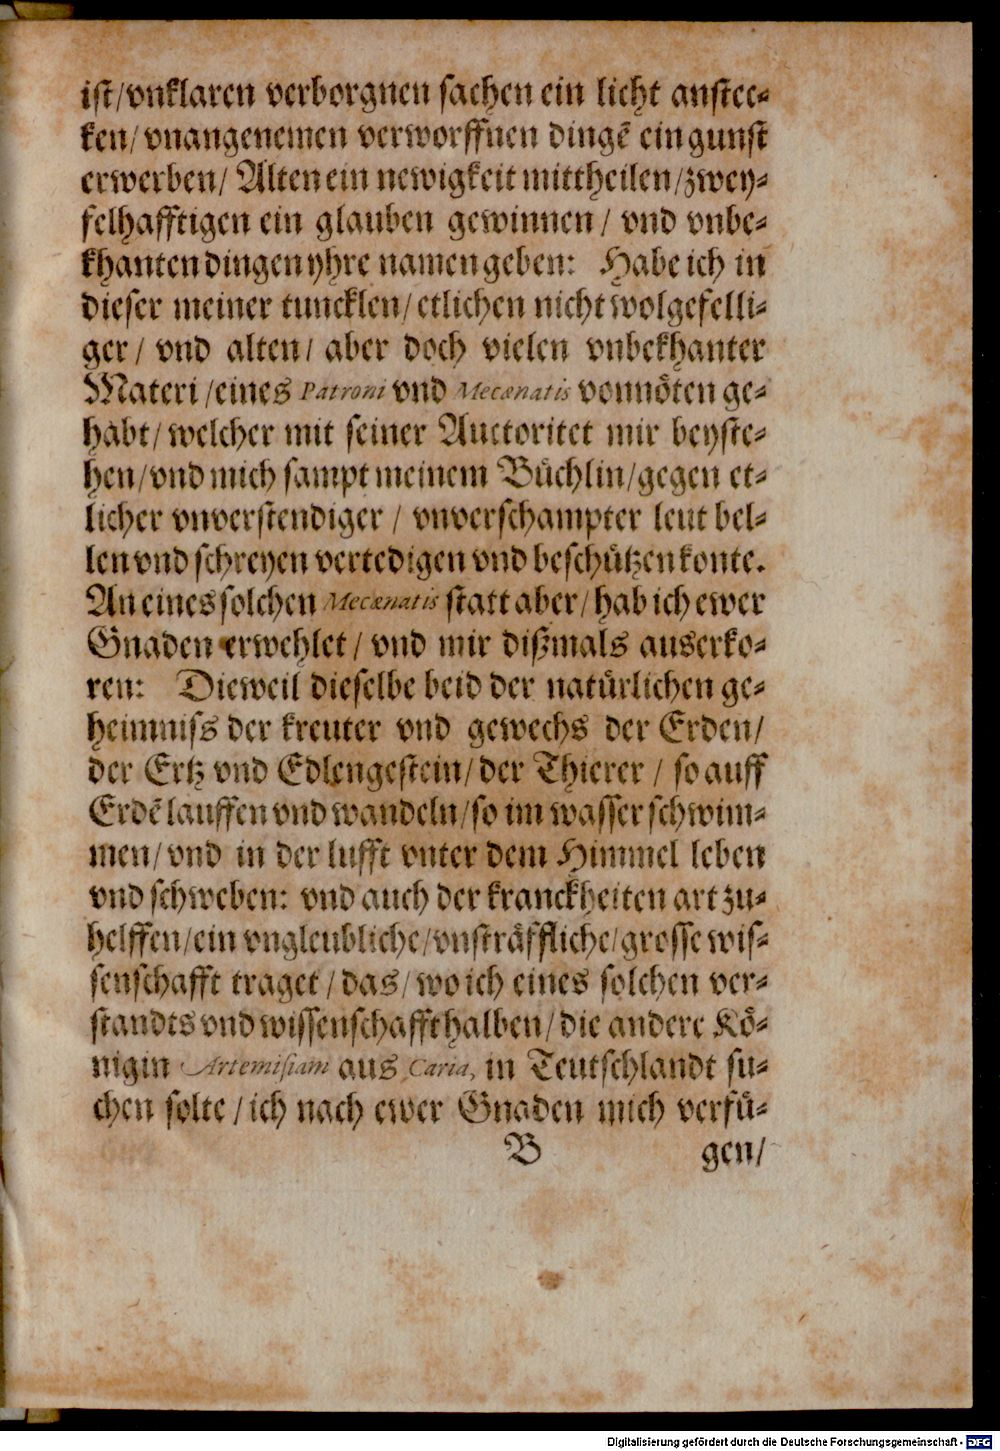 ist/vnklaren verborgnen sachen ein licht anstec-
ken/ vnangenemen verworffnen dingē ein gunst
erwerben/ Alten ein newigkeit mittheilen/zwey-
felhafftigen ein glauben gewinnen / vnd vnbe-
khanten dingen yhre namen geben: Habe ich in
dieser meiner tuncklen/etlichen nicht wolgefelli-
ger / vnd alten/ aber doch vielen vnbekhanter
Materi /eines Patroni vnd Mecænatis vonnöten ge-
habt/ welcher mit seiner Auctoritet mir beyste-
hen/vnd mich sampt meinem Büchlin/gegen et-
licher vnverstendiger / vnverschampter leut bel-
len vnd schreyen vertedigen vnd beschützen konte.
An eines solchen Mecænatis statt aber/ hab ich ewer
Gnaden erwehlet / vnd mir dißmals auserko-
ren: Dieweil dieselbe beid der natürlichen ge-
heimniss der kreuter vnd gewechs der Erden/
der Ertz vnd Edlengestein/ der Thierer / so auff
Erdē lauffen vnd wandeln/so im wasser schwim-
men/ vnd in der lufft vnter dem Himmel leben
vnd schweben: vnd auch der kranckheiten art zu-
helffen/ein vngleubliche/vnsträffliche/grosse wis-
senschafft traget / das/ wo ich eines solchen ver-
standts vnd wissenschafft halben/ die andere Kö-
nigin Artemisiam aus Caria, in Teutschlandt su-
chen solte / ich nach ewer Gnaden mich verfü-
B gen/
Digitalisierung gefördert durch die Deutsche Forschungsgemeinschaft - DFG